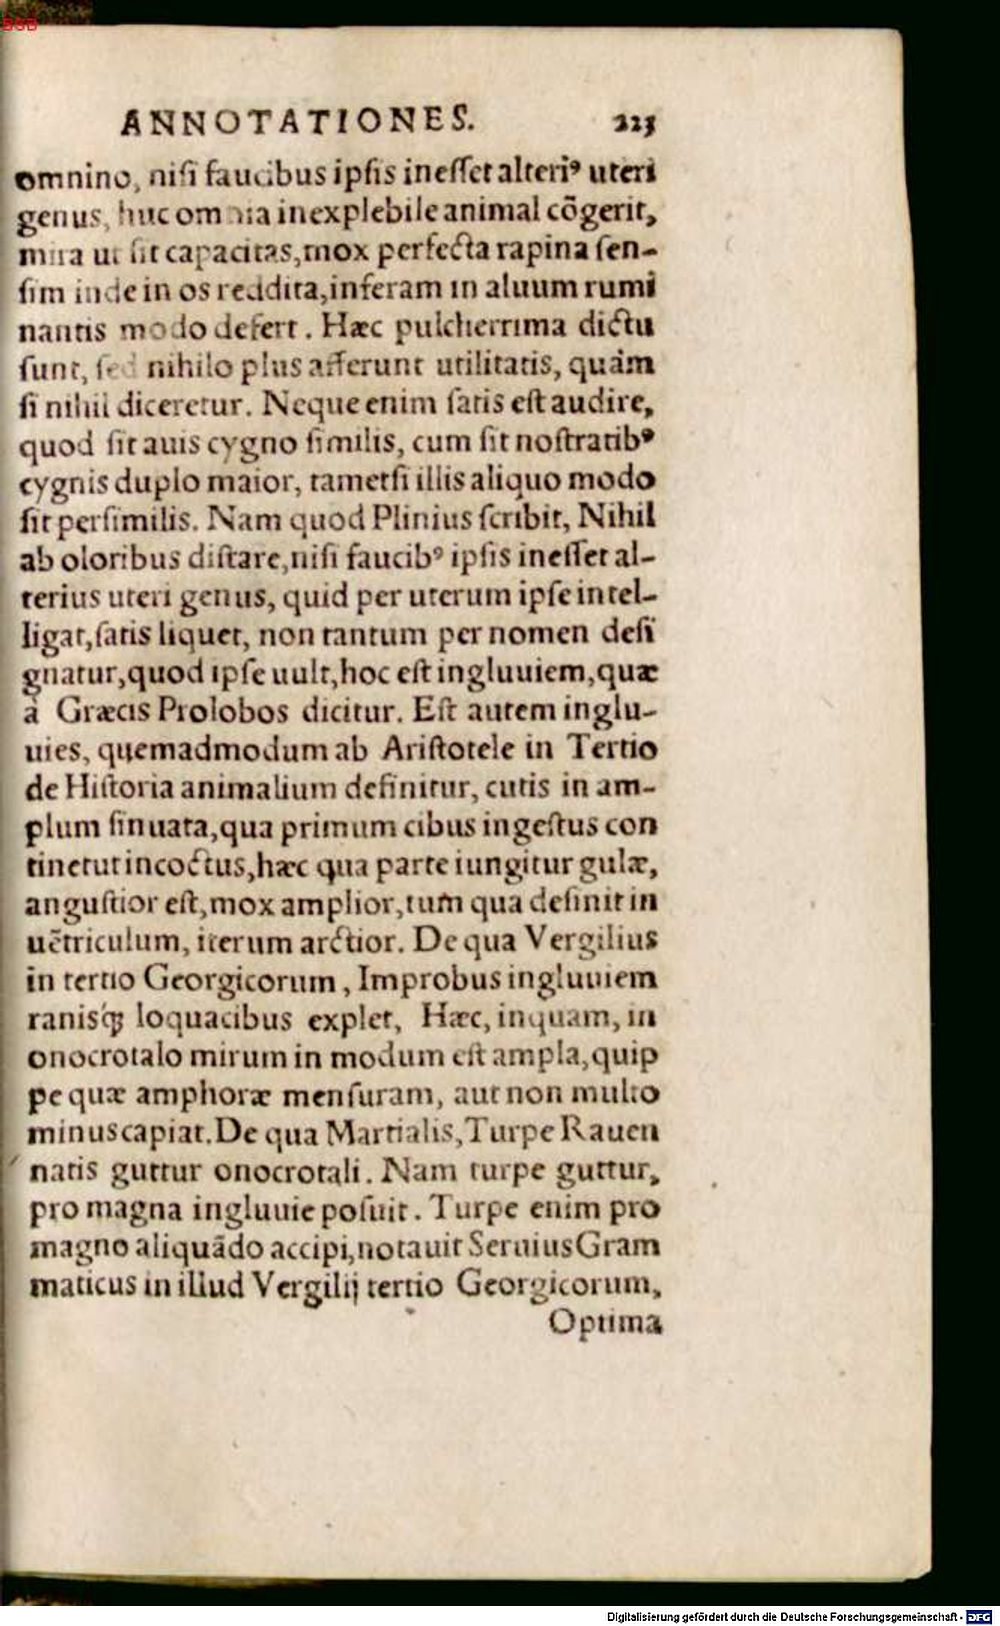 BSB
ANNOTATIONES. 223
omnino, nisi faucibus ipsis inesset alteriꝰ uteri
genus, huc omnia inexplebile animal cōgerit,
mira ut sit capacitas, mox perfecta rapina sen-
sim inde in os reddita, inferam in aluum rumi
nantis modo defert. Hæc pulcherrima dictu
sunt, sed nihilo plus afferunt utilitatis, quàm
si nihil diceretur. Neque enim satis est audire,
quod sit auis cygno similis, cum sit nostratibꝰ
cygnis duplo maior, tametsi illis aliquo modo
sit persimilis. Nam quod Plinius scribit, Nihil
ab oloribus distare, nisi faucibꝰ ipsis inesset al-
terius uteri genus, quid per uterum ipse intel-
ligat, satis liquet, non tantum per nomen desi
gnatur, quod ipse uult, hoc est ingluuiem, quæ
à Græcis Prolobos dicitur. Est autem inglu-
uies, quemadmodum ab Aristotele in Tertio
de Historia animalium definitur, cutis in am-
plum sinuata, qua primum cibus ingestus con
tinetur incoctus, hæc qua parte iungitur gulæ,
angustior est, mox amplior, tum qua desinit in
uētriculum, iterum arctior. De qua Vergilius
in tertio Georgicorum, Improbus ingluuiem
ranisq́ꝫ loquacibus explet, Hæc, inquam, in
onocrotalo mirum in modum est ampla, quip
pe quæ amphoræ mensuram, aut non multo
minus capiat. De qua Martialis, Turpe Rauen
natis guttur onocrotali. Nam turpe guttur,
pro magna ingluuie posuit. Turpe enim pro
magno aliquādo accipi, notauit Seruius Gram
maticus in illud Vergilij tertio Georgicorum,
Optima
Digitalisierung gefördert durch die Deutsche Forschungsgemeinschaft - DFG